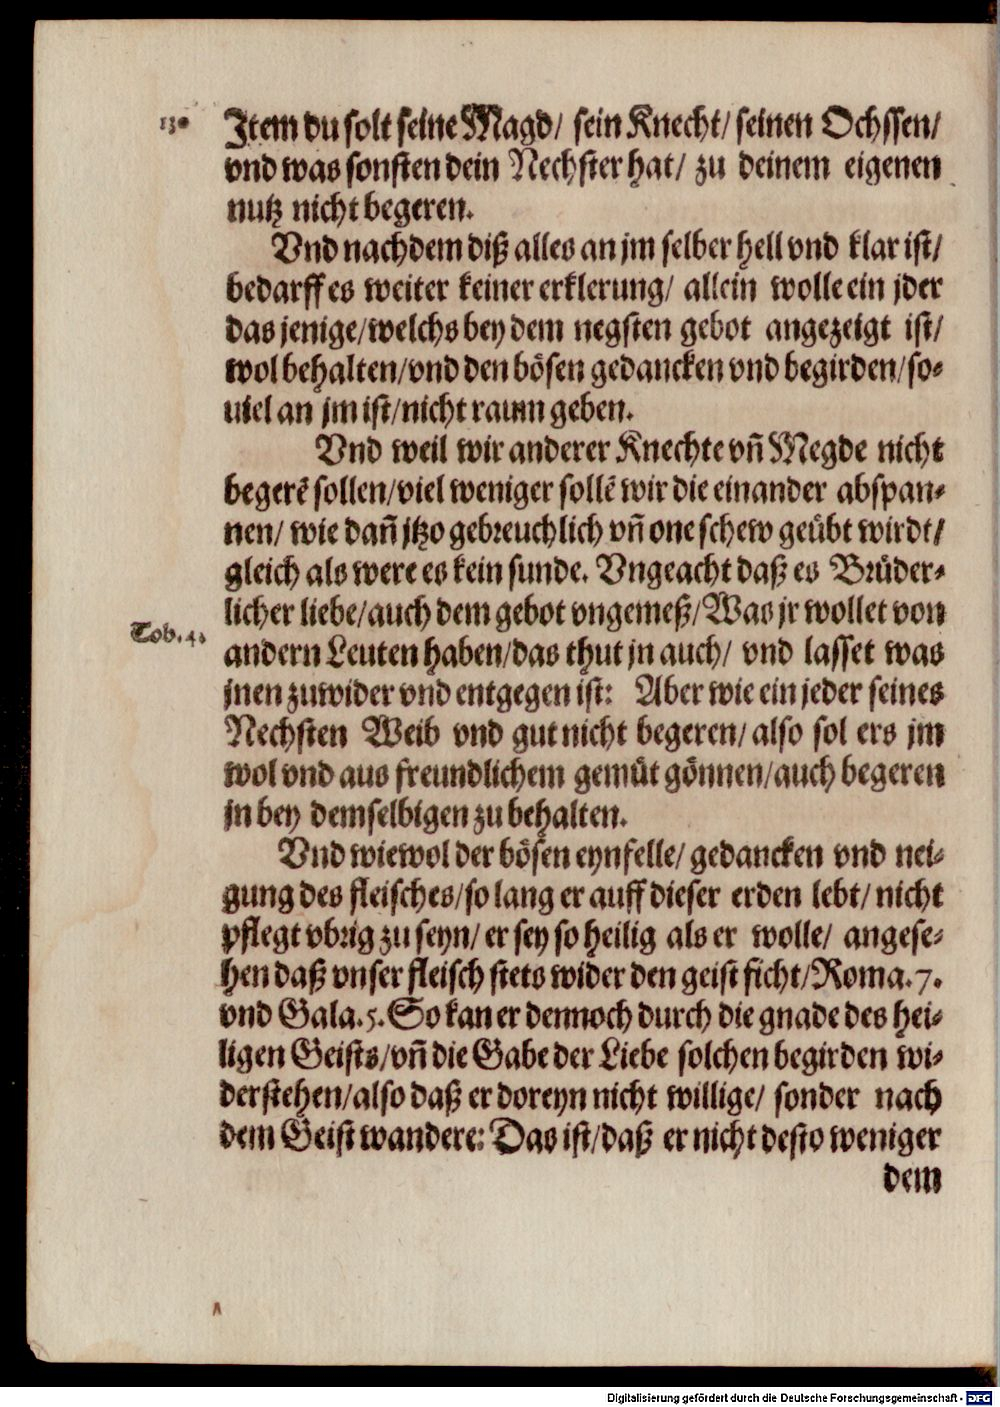 13.
Item du solt seine Magd/ sein Knecht/ seinen Ochssen/
vnd was sonsten dein Nechster hat/ zu deinem eigenen
nutz nicht begeren.
Vnd nachdem diß alles an jm selber hell vnd klar ist/
bedarff es weiter keiner erklerung/ allein wolle ein jder
das jenige/welchs bey dem negsten gebot angezeigt ist/
wol behalten/vnd den bösen gedancken vnd begirden/so-
uiel an jm ist/nicht raum geben.
Vnd weil wir anderer Knechte vñ Megde nicht
begerē sollen/viel weniger sollē wir die einander abspan-
nen/ wie dañ jtzo gebreuchlich vñ one schew geübt wirdt/
gleich als were es kein sunde. Vngeacht daß es Brüder-
licher liebe/auch dem gebot vngemeß/Was jr wollet von
Tob. 4.
andern Leuten haben/das thut jn auch/ vnd lasset was
jnen zuwider vnd entgegen ist: Aber wie ein jeder seines
Nechsten Weib vnd gut nicht begeren/ also sol ers jm
wol vnd aus freundlichem gemüt gönnen/auch begeren
jn bey demselbigen zu behalten.
Vnd wiewol der bösen eynfelle/ gedancken vnd nei-
gung des fleisches/so lang er auff dieser erden lebt/ nicht
pflegt vbrig zu seyn/ er sey so heilig als er wolle/ angese-
hen daß vnser fleisch stets wider den geist ficht/Roma.7.
vnd Gala.5. So kan er dennoch durch die gnade des hei-
ligen Geists/vñ die Gabe der Liebe solchen begirden wi-
derstehen/also daß er doreyn nicht willige/ sonder nach
dem Geist wandere: Das ist/daß er nicht desto weniger
dem
Digitalisierung gefördert durch die Deutsche Forschungsgemeinschaft - DFG